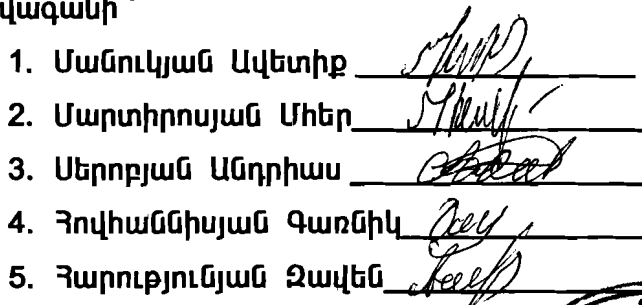 վագանի
1. Մանուկյան Ավետիք
2. Մարտիրոսյան Մհեր
3. Սերոբյան Անդրիաս
4. Հովհաննիսյան Գառնիկ
5. Հարությունյան Զավեն